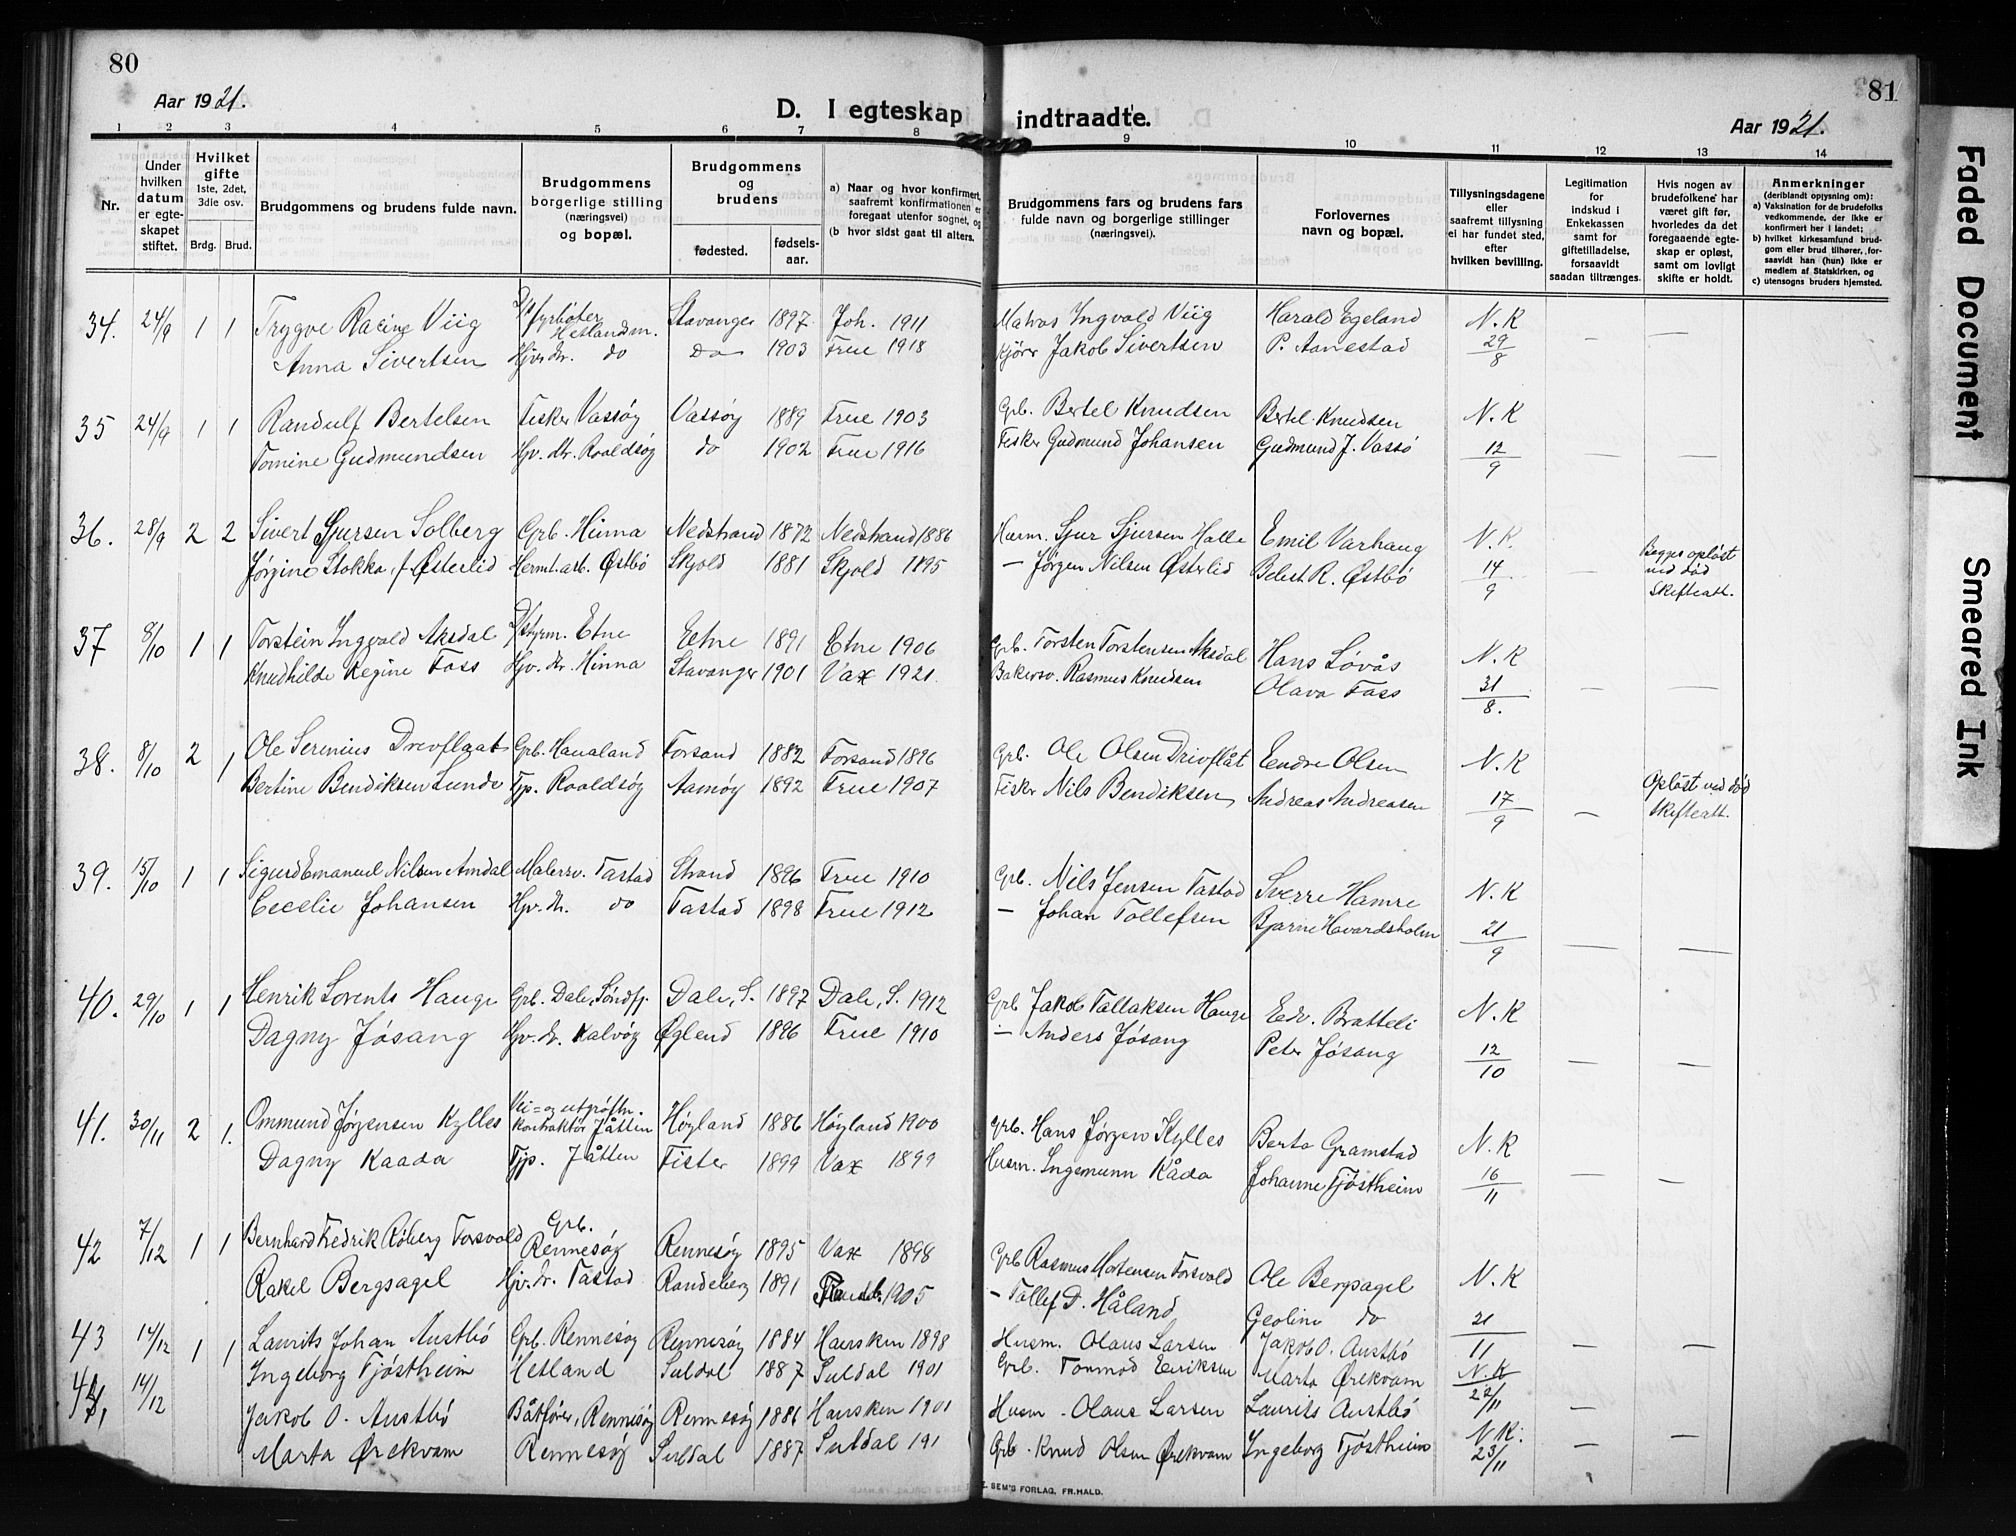 80
81
Aar 1921.
D. I egteskap indtraadte.
Aar 1921.
1 2 3 4 5 6 7 8 9 10 11 12 13 14
Nr.
Under hvilken datum er egteskapet stiftet.
Hvilket gifte 1ste, 2det, 3die osv.
Brdg. Brud.
Brudgommens og brudens fulde navn.
Brudgommens borgerlige stilling (næringsvei) og bopæl.
Brudgommens og brudens
fødested. fødsels-aar.
a) Naar og hvor konfirmert, saafremt konfirmationen er foregaat utenfor sognet, og
(b hvor sidst gaat til alters.
Brudgommens fars og brudens fars fulde navn og borgerlige stillinger (næringsvei).
Forlovernes navn og bopæl.
Tillysningsdagene eller saafremt tillysning ei har fundet sted, efter hvilken bevilling.
Legitimation for indskud i Enkekassen samt for giftetilladelse, forsaavidt saadan tiltrænges.
Hvis nogen av brudefolkene har været gift før, hvorledes da det foregaaende egteskap er opløst, samt om lovligt skifte er holdt.
Anmerkninger
(deriblandt opjysning om):
a) Vaksination for de brudefolks vedkommende, der ikke er konfirmert her i landet;
b) hvilket kirkesamfund brudgom eller brud tilhører, forsaavidt han (hun) ikke er medlem af Statskirken, og
c) utensogns bruders hjemsted.
34. 24/9 1 1 Trygve Racine Viig D/S fyrbøter Hetlandm. Stavanger 1897 Joh. 1911 Matros Ingvald Viig Harald Egeland N.K —
Anna Sivertsen Hjv. dr. do do 1903 Frue 1918 Kjører Jakob Sivertsen P. Aanestad 29/8 —
35 24/9 1 1 Randulf Bertelsen Fisker Vassøy Vassøy 1889 Frue 1903 Grb. Bertel Knudsen Bertel Knudsen N.K
Tomine Gudmundsen Hjv. dr. Roaldsøy do 1902 Frue 1916 Fisker Gudmund Johansen Gudmund J. Vassø 12/9 — —
36. 28/9 2 2 Sivert Sjursen Solberg Grb. Hinna Nedstrand 1872 Nedstrand 1886 Husm. Sjur Sjursen Halle Emil Varhaug N.K. Begges opløst ved død
Jørgine Stokka, f. Østerlid Hermt. arb. Østbø Skjold 1881 Skjold 1895 — Jørgen Nilsen Østerlid R. Østbø 14/9 — Skifteatt.
37 8/10 1 1 Torstein Ingvald Aksdal D/S styrm. Etne Etne 1891 Etne 1906 Grb. Torsten Torstensen Aksdal Hans Løvås N.K
Knudhilde Regine Foss Hjv. dr. Hinna Stavanger 1901 Vax 1921 Bakersv. Rasmus Knudsen Olava Foss 31/8. — —
38. 8/10 2 1 Ole Serinius Drevflaat Grb. Haualand Forsand 1882 Forsand 1896 Grb. Ole Olsen Drivflåt Endre Olsen N.K Opløst ved død
Bertine Bendiksen Lunde Tjp. Roaldsøy Aamøy 1892 Frue 1907 Fisker Nils Bendiksen Andreas Andreasen 17/9 — Skifteatt.
39. 15/10 1 1 Sigurd Emanuel Nilsen Amdal Malersv. Tastad Strand 1896 Frue 1910 Grb. Nils Jensen Tastad Sverre Hamre N.K
Cecelie Johansen Hjv. dr. do Tastad 1898 Frue 1912 — Johan Tollefsen Bjarne Havardsholm 21/9 — —
40. 29/10 1 1 Henrik Lorents Hauge Grb. Dale, Søndfj. Dale, S. 1897 Dale, S. 1912 Grb Jakob Tallaksen Hauge Edv. Bratteli N.K
Dagny Jøsang Hjv. dr. Kalvøy Øglend 1896 Frue 1910 — Anders Jøsang Peter Jøsang 12/10 — —
41. 30/11 2 1. Ommund Jørgensen Kylles Vei= og utgrøftn. kontraktør Jåtten Høyland 1886 Høyland 1900 Grb. Hans Jørgen Kylles Berta Gramstad N.K
Dagny Kaada Tjp. Jåtten Fister 1899 Vax 1899 Husm. Ingemunn Kåda Johanne Tjøstheim 16/11 — —
42 7/12 1 1 Bernhard Fredrik Røberg Forsvold Grb. Rennesøy Rennesøy 1895 Vax 1898 Grb Rasmus Mortensen Forsvold Ole Bergsagel N.K
Rakel Bergsagel Hjv. dr. Tastad Randeberg 1891 Randeb. 1905 — Tollef D. Håland Geoline do 21/11
43 14/12 1 1 Laurits Johan Austbø Grb. Rennesøy Rennesøy 1884 Hausken 1898 Husm. Olaus Larsen Jakob O. Austbø — —
Ingeborg Tjøstheim Hetland Suldal 1887 Suldal 1901 Grb. Tormod Eriksen Marta Ørekvam N.K 22/11
44 14/12 Jakob O. Austbø Båtfører, Rennesøy Rennesøy 1886 Hausken 1901 Husm. Olaus Larsen Laurits Austbø —
Marta Ørekvam Rennesøy Suldal 1887 Suldal 191 Grb. Knud Olsen Ørekvam Ingeborg Tjøstheim N.K. 23/11 — —
SEM'S FORLAG, FR.HALD.
Faded Document
Smeared Ink